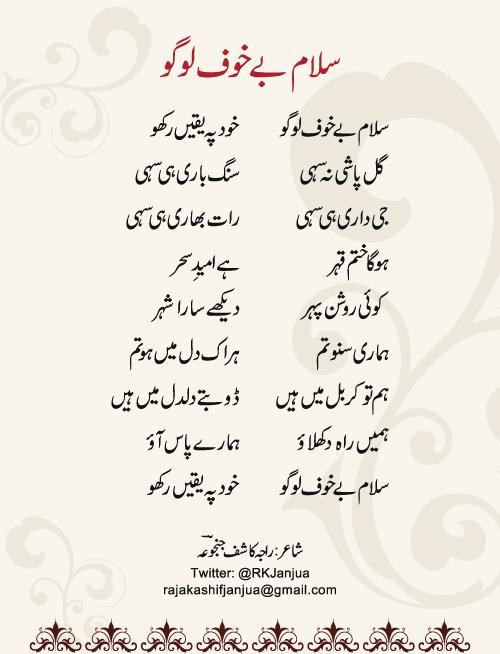 سلام بے خوف لوگو
سلام بے خوف لوگو خود پہ یقیں رکھو
گل پاشی نہ سہی سنگ باری ہی سہی
جی داری ہی سہی رات بھاری ہی سہی
ہوگا ختم قہر ہے امیدِ سحر
کوئی روشن پہر دیکھے سارا شہر
ہماری سنو تم ہر اک دل میں ہو تم
ہم تو کربل میں ہیں ڈوبتے دلدل میں ہیں
ہمیں راہ دکھلاؤ ہمارے پاس آؤ
سلام بے خوف لوگو خود پہ یقیں رکھو
شاعر: راجہ کاشف جنجوعہ
Twitter: @RKJanjua
rajakashifjanjua@gmail.com